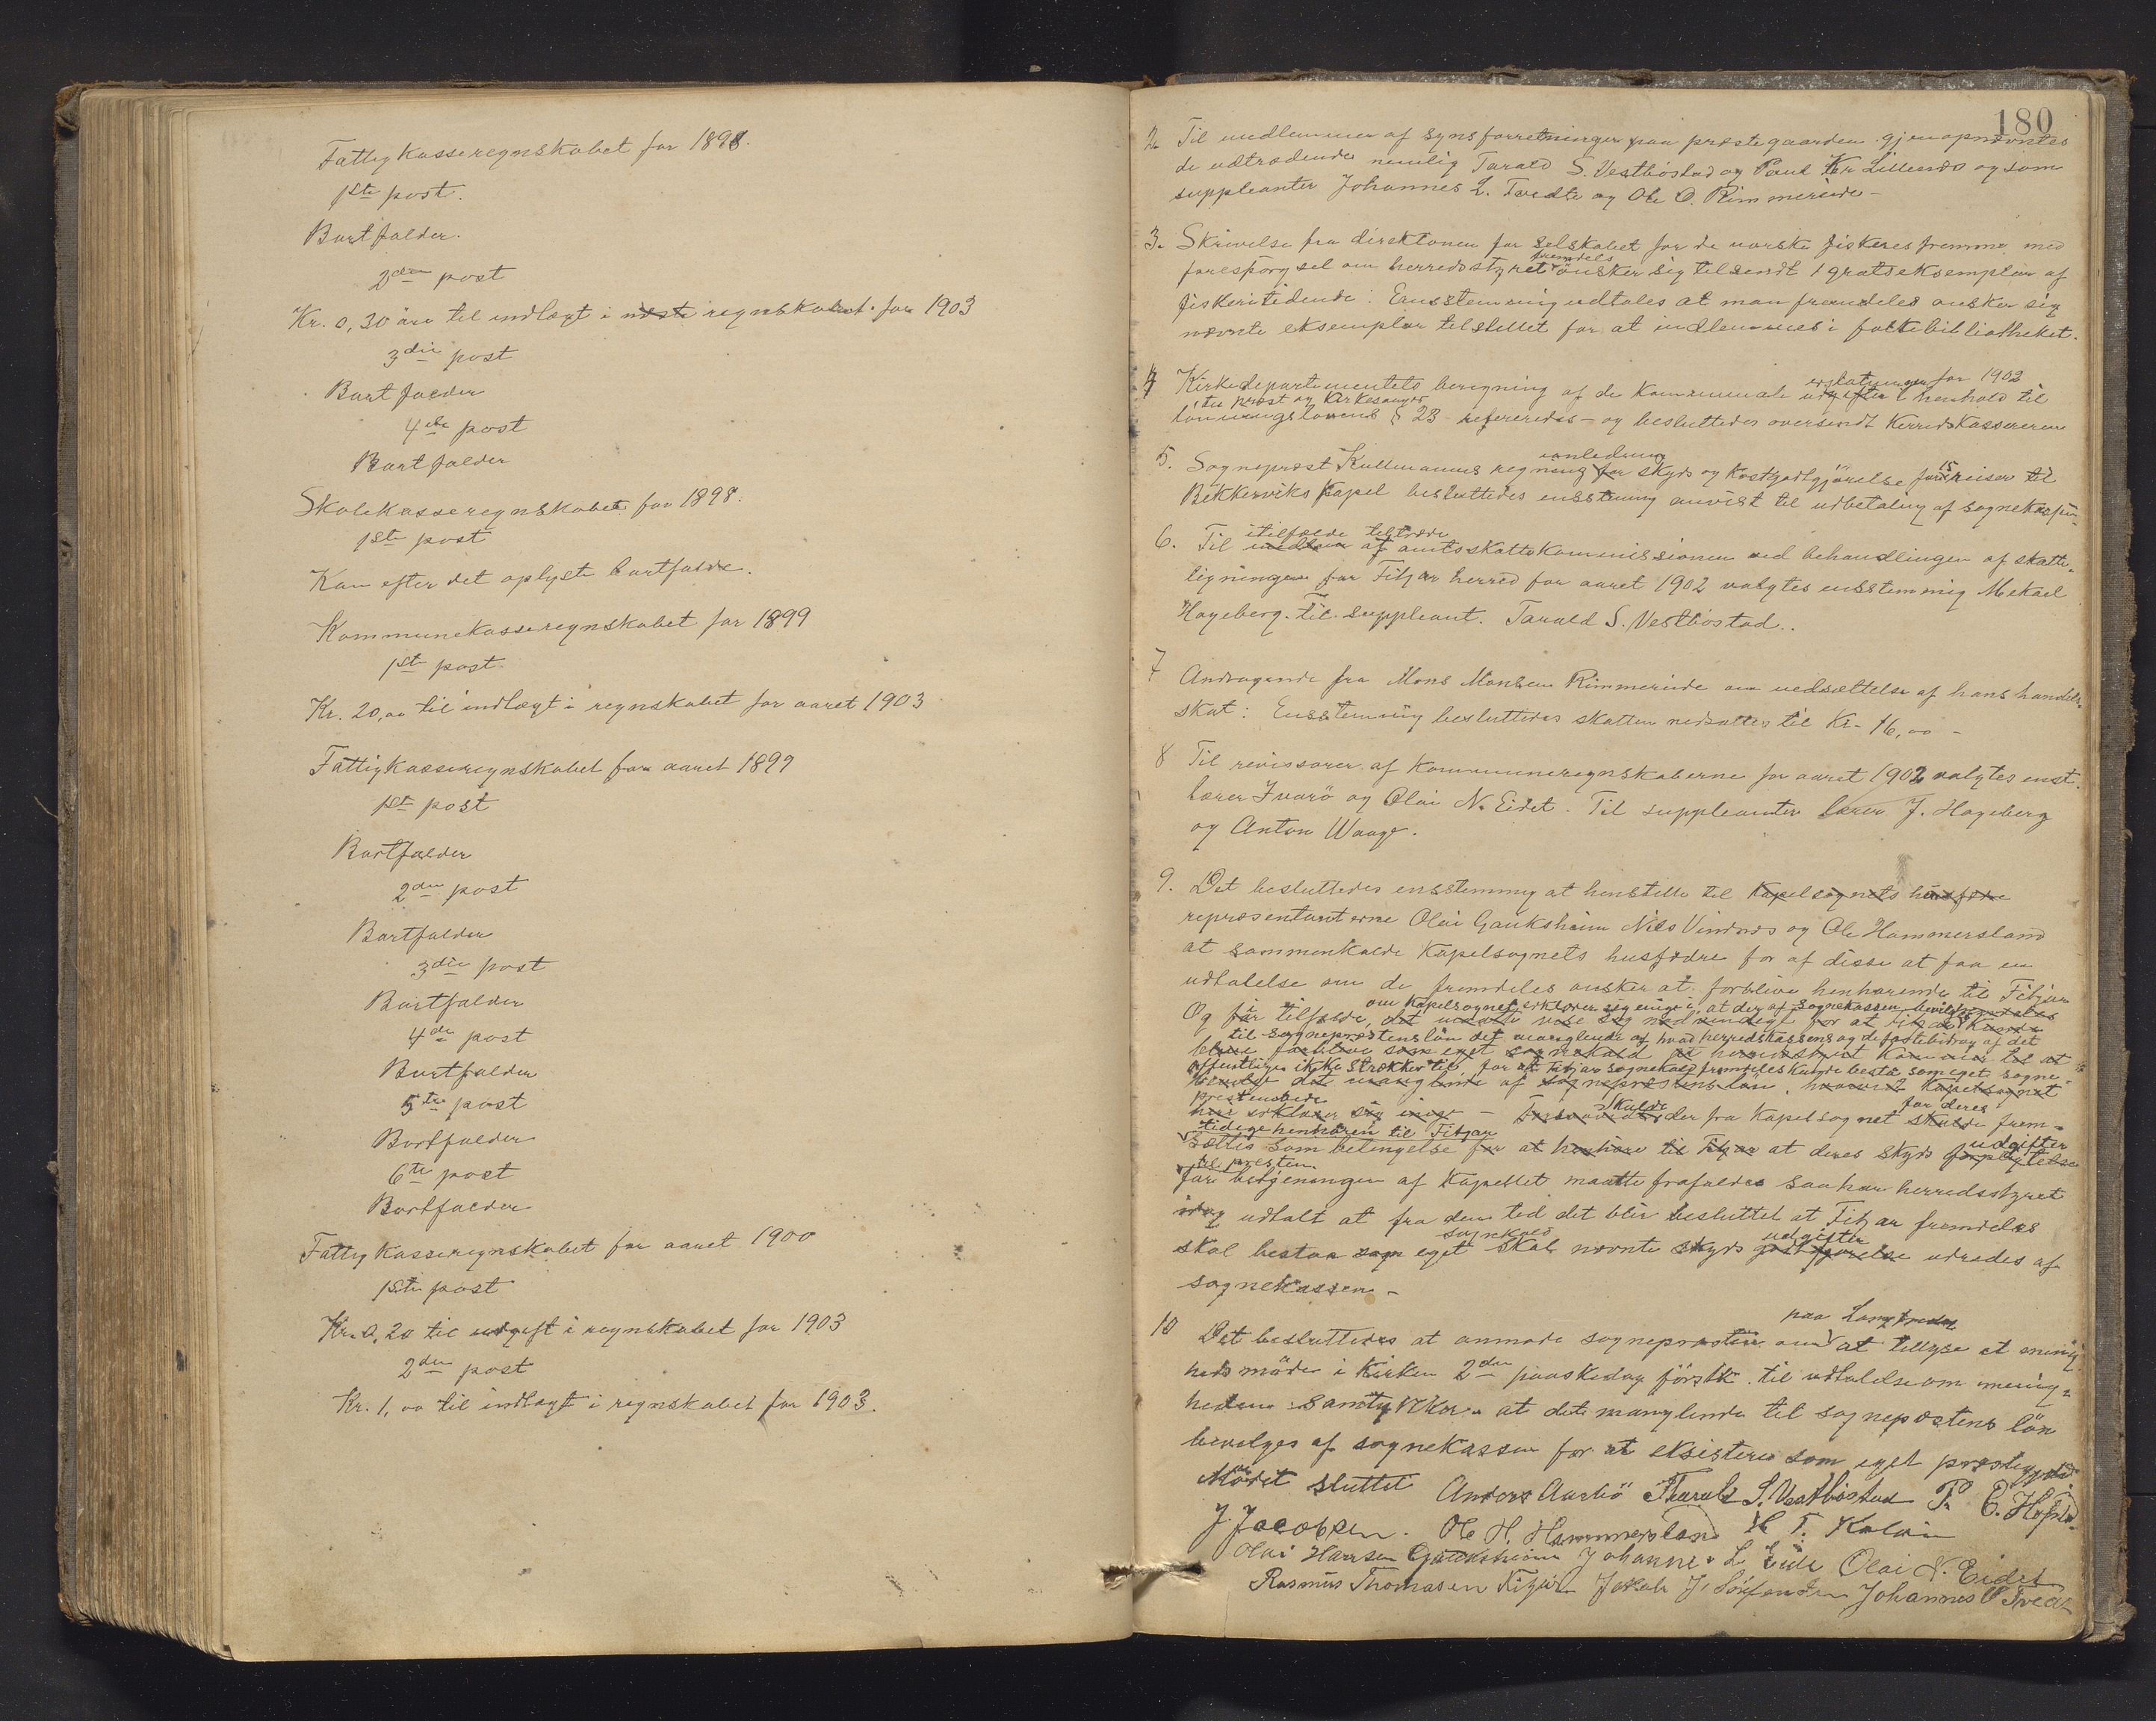 Fattigkasseregnskabet for 1898.
1ste post.
Bortfalder.
2den post
Kr. 0,30 øre til indtægt i næste regnskabet for 1903
3die post
Bortfalder
4de post
Bortfalder
Skolekasseregnskabet for 1898.
1ste post
Kan efter det oplyste bortfalde.
Kommunekasseregnskabet for 1899
1ste post.
Kr. 20,00 til indtægt i regnskabet for aaret 1903
Fattigkasseregnskabet for aaret 1899
1ste post
Bortfalder
2den post
Bortfalder
3die post
Bortfalder
4de post
Bortfalder
5te post
Bortfalder
6te post
Bortfalder
Fattigkasseregnskabet for aaret 1900
1ste post
Kr. 0,20 til udgift i regnskabet for 1903
2den post
Kr. 1,00 til indtægt i regnskabet for 1903.
180
2. Til medlemmer af synsforretninger paa præstegaarden gjenopnævntes
de udtrædende nemlig Tarald S. Vestbøstad og Poul Kr. Lillenæs og som
suppleanter Johannes L. Tvedte og Ole O. Rimmereide -
3. Skrivelse fra direktionen for selskabet for de norske fiskeries fremme med
fremdels
forespørgsel om herredsstyret ønsker sig tilsendt 1 gratseksemplar af
fiskeritidende: Ensstemmig udtales at man fremdeles ønsker sig
nævnte eksemplar tilstillet for at indlemmes i folkebibliotheket.
erstatninger for 1902
4 Kirkedepartementets beregning af de kommunale udgifter i henhold til
til prest og kirkesanger
lønningslovens § 23 refereredes - og besluttedes oversendt Herredskassereren
anledning
5. Sogneprest Kullmanns regning for skyds og kostgodtgjørelse for 15 reiser til
Bekkerviks kapel besluttedes ensstemmig anvist til udbetaling af sognekassen
itilfælde tiltræde
6. Til medlem af amtsskattekommissionen ved behandlingen af skatte-
ligningen for Fitjar herred for aaret 1902 valgtes ensstemmig Mekael
Hageberg. Til suppleant. Tarald S. Vestbøstad.
7 Andragende fra Mons Monsen Rimmereide om nedsættelse af hans handels-
skat: Ensstemmig besluttedes skatten nedsattes til Kr. 16,00 -
8 Til revisorer af kommuneregnskaberne for aaret 1902 valgtes enst.
lærer Ivarø og Olai N. Eidet. Til suppleanter lærer J. Hageberg
og Anton Waage.
9. Det besluttedes ensstemmig at henstille til Kapelsognets husfædre
repræsentanterne Olai Gauksheim Nils Vindnæs og Ole Hammersland
at sammenkalde Kapelsognets husfædre for af disse at faa en
udtalelse om de fremdeles ønsker at forblive henhørende til Fitjar
om kapelsognet erklærer sig enige i, at der af sognekassen bevilges
Og for tilfælde, det maatte vise sig nødvendigt for at Fitjar kunde
til sognepræstens løn det manglende af hvad herredskassens og de faste bidrag af det
blive forblive som eget sognekald at herredsstyret kommer til at
offentlige ikke strækker til, for at Fitjar sognekald fremdeles kunde bestå som eget sogne-
bevilge det manglende af sognepræstens løn, hvorved kapelsognet
prestembede
her erklærer sig enige - Skulde der fra kapelsognet skulde for deres frem-
tidige henhøren til Fitjar
sættes som betingelse for at henhøre til Fitjar at deres skyds udgifter forpligtelse
til presten
for betjeningen af Kapellet maatte frafaldes saa har herredsstyret
idag udtalt at fra den tid det blir besluttet at Fitjar fremdeles
sognekald udgifter
skal bestaa som eget skal nævnte skyds godtgjørelse udredes af
sognekassen -
paa Langfredag
10 Det besluttedes at anmode sognepræsten om at tillyse et menig-
hedsmøde i kirken 2den paaskedag førstk. til udtalelse om menig-
heden samtykker i at det manglende til sognepræstens løn
bevilges af sognekassen for at eksistere som eget prestegjeld
Mødet sluttet Anders Aarbø Tharald S. Vestbøstad P. C. Hopland
J. Jacobsen. Ole H. Hammersland H T. Kalvin
Olai Hansen Gauksheim Johannes L Eide Olai N. Eidet
Rasmus Thomasen Fitjar Jakob J. Sørfonden Johannes O Tvedt